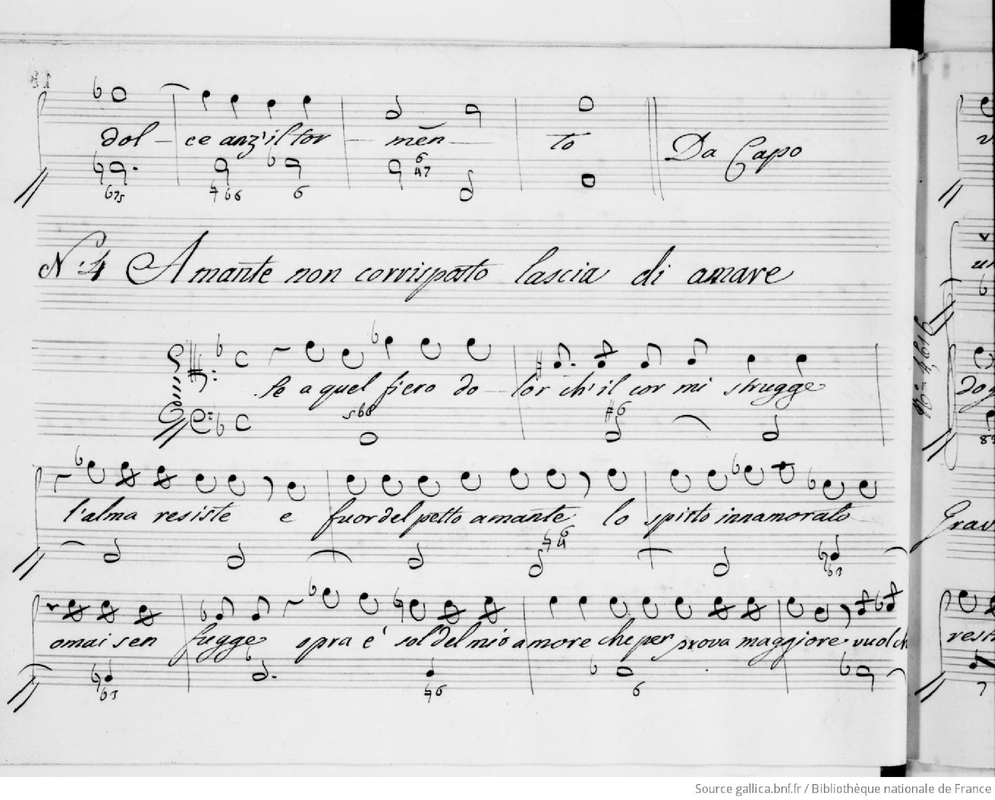 dol - ce anz'il tor - men - to Da Capo
N.º 4 Amante non corrisposto lascia di amare
Se a quel fiero do - lor ch'il cor mi strugge
l'alma resiste e fuor del petto amante lo spirto innamorato
omai sen fugge opra è sol del mio amore che per prova maggiore vuol ch
Source gallica.bnf.fr / Bibliothèque nationale de France